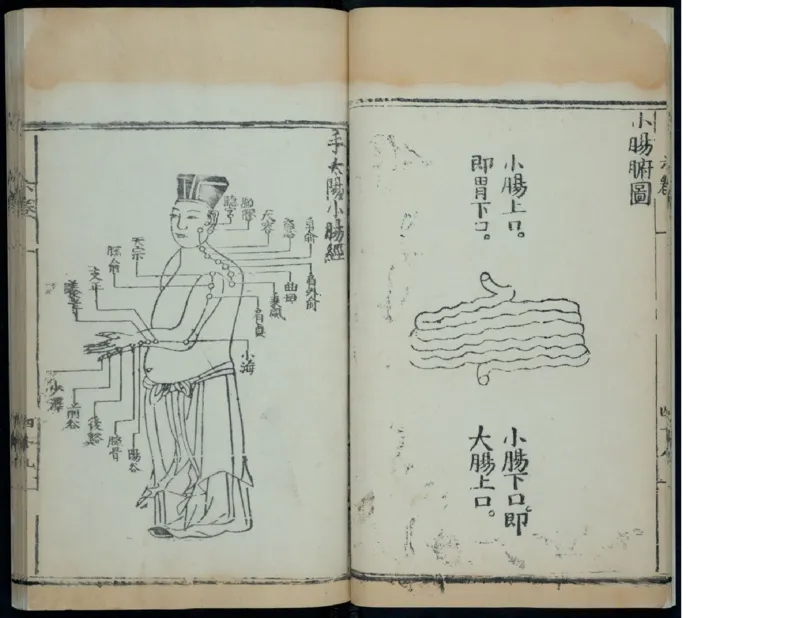 小腸腑圖
小腸上口。
即胃下口。
小腸下口即
大腸上口。
手太陽小腸經
肩外俞
曲垣
秉風
天容
天宗
臑俞
肩貞
支正
小海
少澤
前谷
後谿
腕骨
陽谷